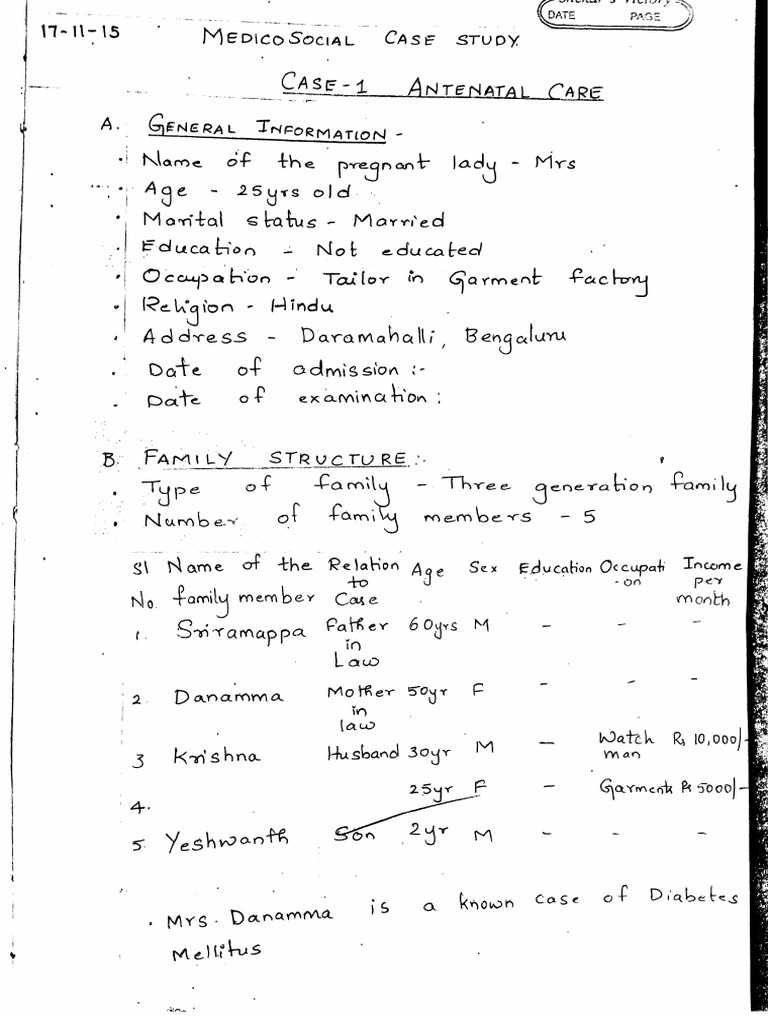 DATE PAGE
17-11-15 MEDICOSOCIAL CASE STUDY
CASE-1 ANTENATAL CARE
A. GENERAL INFORMATION -
• Name of the pregnant lady - Mrs
• Age - 25yrs old
• Marital status - Married
• Education - Not educated
• Occupation - Tailor in Garment factory
• Religion - Hindu
• Address - Daramahalli, Bengaluru
• Date of admission :-
• Date of examination :
B. FAMILY STRUCTURE :-
• Type of family - Three generation family
• Number of family members - 5
Sl Name of the Relation Age Sex Education Occupati Income
to -on per
No. family member Case month
1. Sriramappa Father 60yrs M - - -
in
Law
2. Danamma Mother 50yr F - - -
in
law
3 Krishna Husband 30yr M - Watch Rs 10,000/-
man
4. 25yr F - Garments Rs 5000/-
5. Yeshwanth Son 2yr M - - -
• Mrs. Danamma is a known case of Diabetes
Mellitus